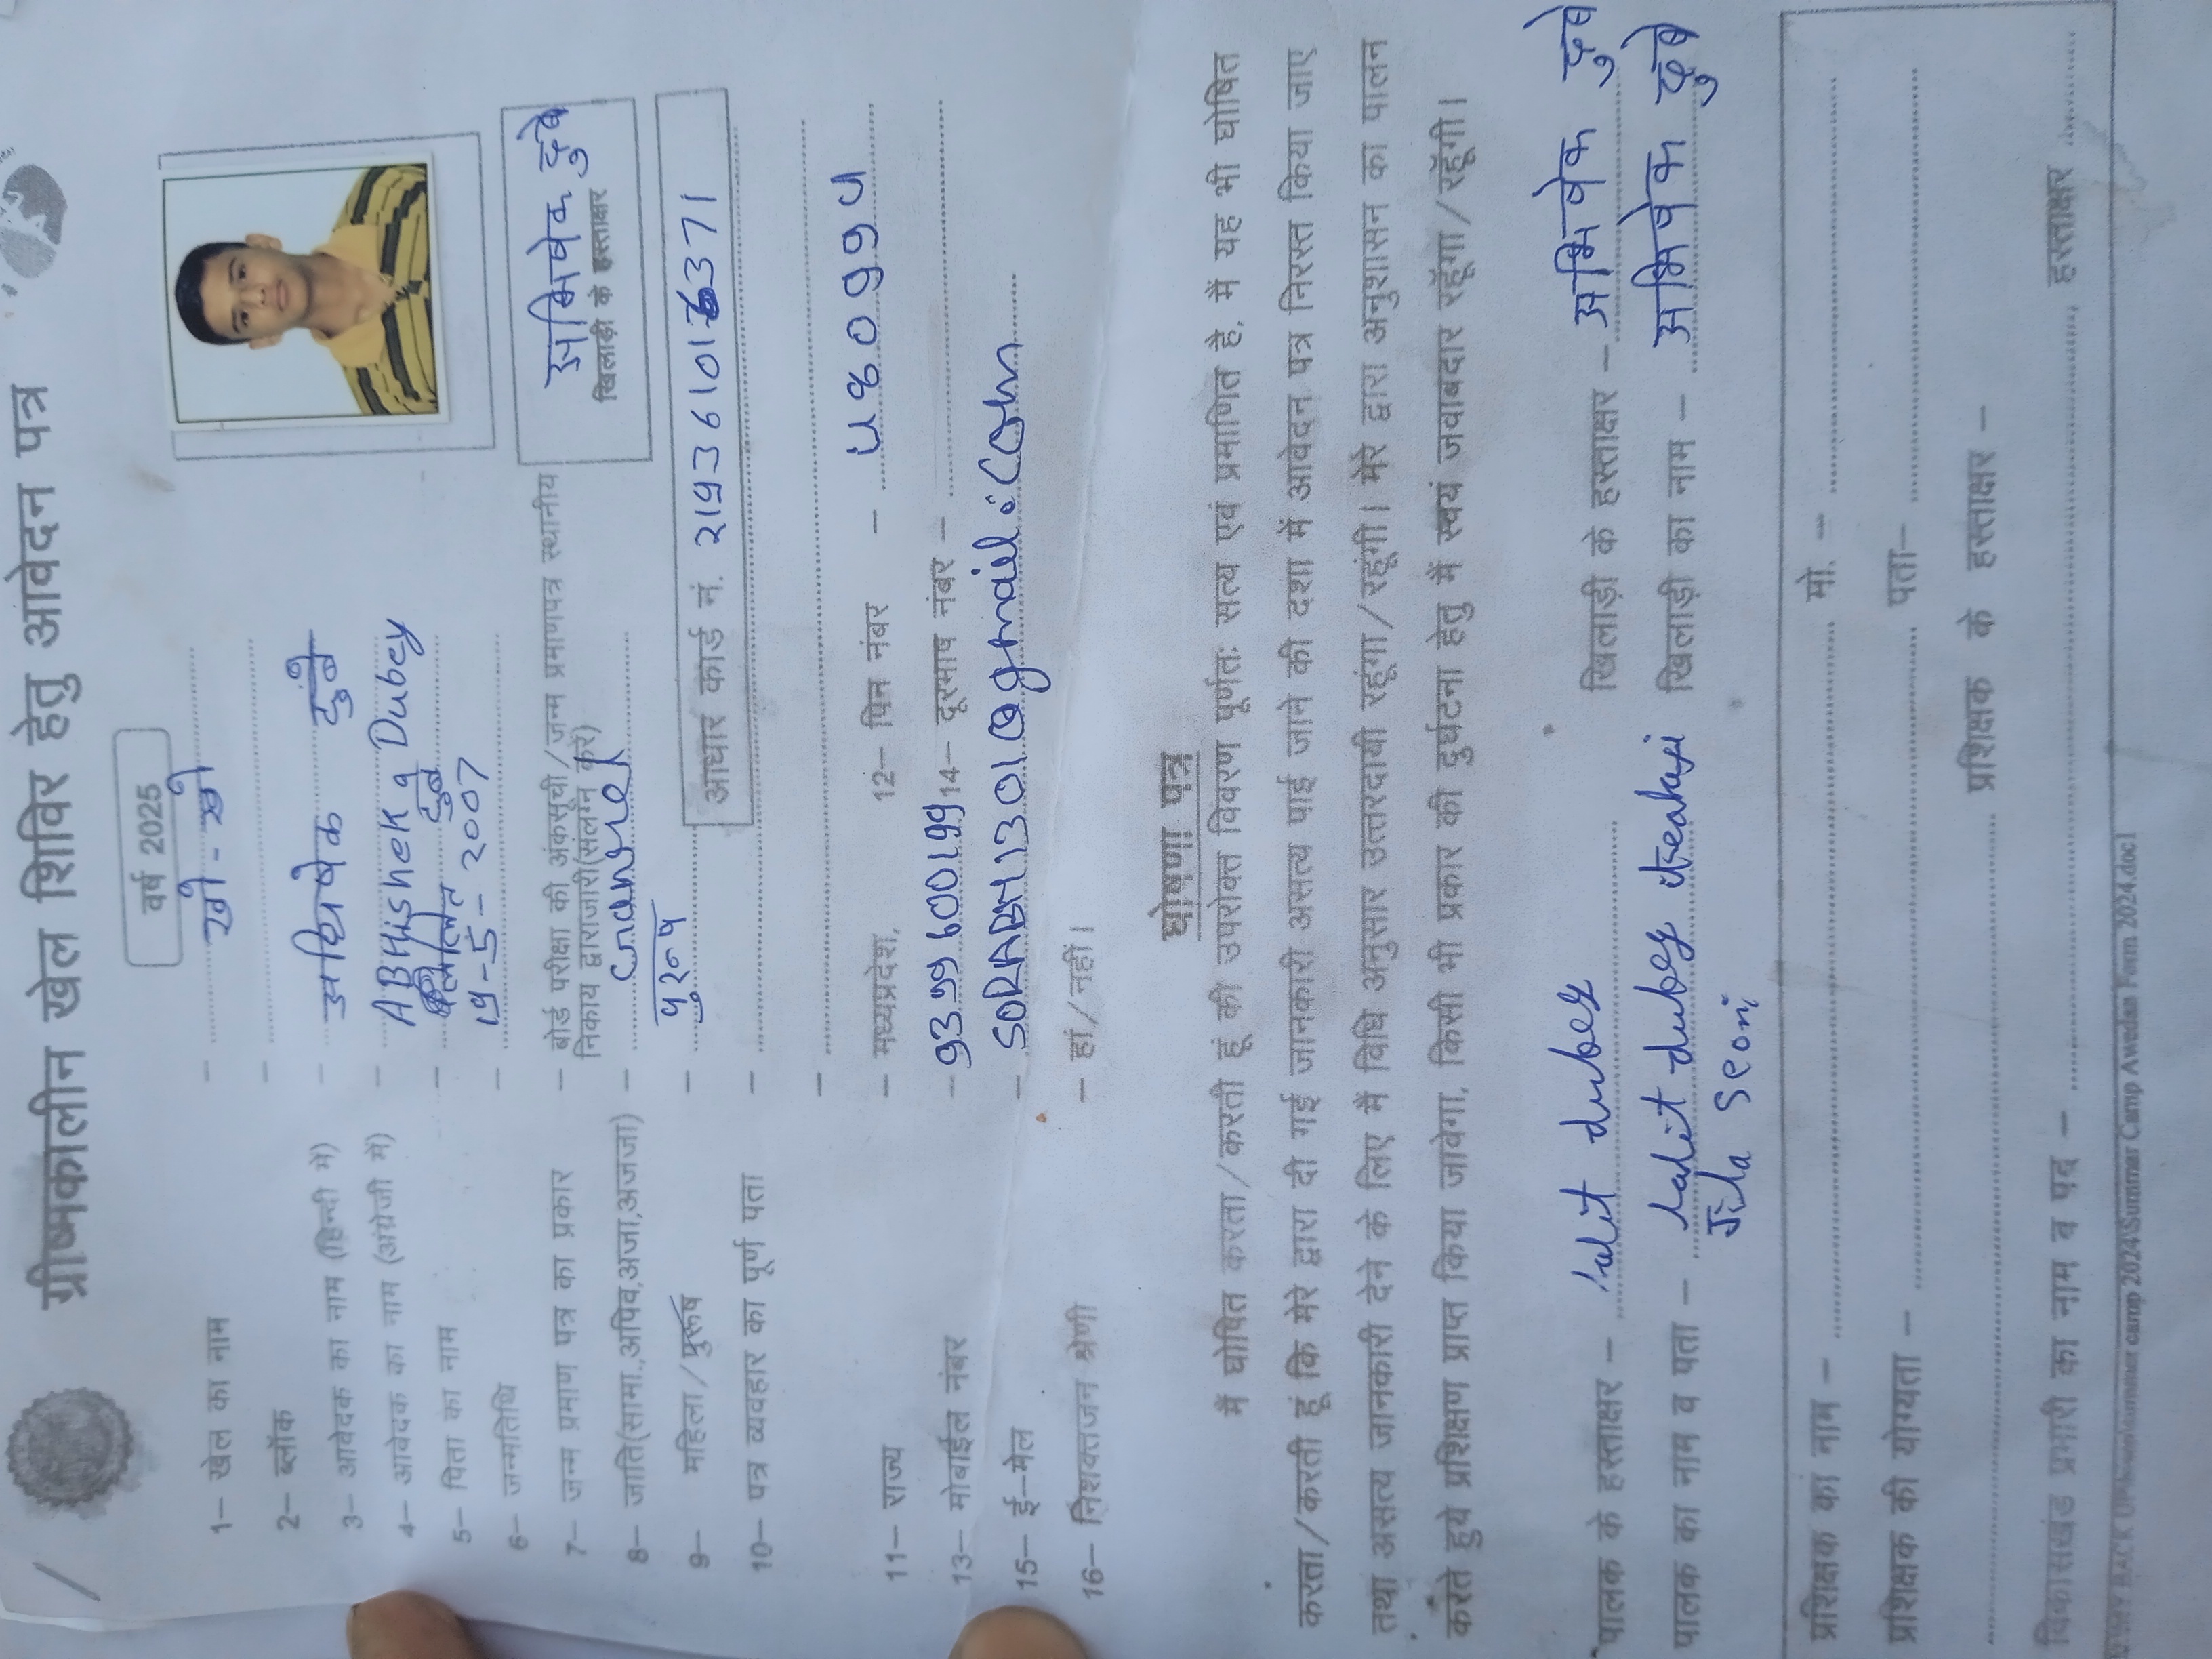 ग्रीष्मकालीन खेल शिविर हेतु आवेदन पत्र
वर्ष 2025
1– खेल का नाम – खो - खो
2– ब्लॉक –
3– आवेदक का नाम (हिन्दी में) – अभिषेक दुबे
4– आवेदक का नाम (अंग्रेजी में) – ABHishek Dubey
5– पिता का नाम – ललित दुबे
6– जन्मतिथि – 19-5-2007
7– जन्म प्रमाण पत्र का प्रकार – बोर्ड परीक्षा की अंकसूची/जन्म प्रमाणपत्र स्थानीय
निकाय द्वाराजारी(संलग्न करें)
अभिषेक दुबे
खिलाड़ी के हस्ताक्षर
8– जाति(सामा.,अपिव,अजा,अजजा) –
9– महिला/पुरूष – पुरुष
आधार कार्ड नं.
10– पत्र व्यवहार का पूर्ण पता –
–
11– राज्य – मध्यप्रदेश, 12– पिन नंबर –
13– मोबाईल नंबर – 14– दूरभाष नंबर –
15– ई–मेल – @gmail.com
16– निशक्तजन श्रेणी – हां/नहीं।
घोषणा पत्र
मैं घोषित करता/करती हूं की उपरोक्त विवरण पूर्णतः सत्य एवं प्रमाणित है, मैं यह भी घोषित
करता/करती हूं कि मेरे द्वारा दी गई जानकारी असत्य पाई जाने की दशा में आवेदन पत्र निरस्त किया जाए
तथा असत्य जानकारी देने के लिए मैं विधि अनुसार उत्तरदायी रहूंगा/रहूंगी। मेरे द्वारा अनुशासन का पालन
करते हुये प्रशिक्षण प्राप्त किया जावेगा, किसी भी प्रकार की दुर्घटना हेतु मैं स्वयं जवाबदार रहूँगा/रहूँगी।
पालक के हस्ताक्षर – lalit dubey खिलाड़ी के हस्ताक्षर – अभिषेक दुबे
पालक का नाम व पता – lalit dubey खिलाड़ी का नाम – अभिषेक दुबे
Jila Seoni
प्रशिक्षक का नाम – मो. –
प्रशिक्षक की योग्यता – पता–
प्रशिक्षक के हस्ताक्षर –
विकासखंड प्रभारी का नाम व पद – हस्ताक्षर
camp 2024\Summer Camp Awedan Form 2024.doc1